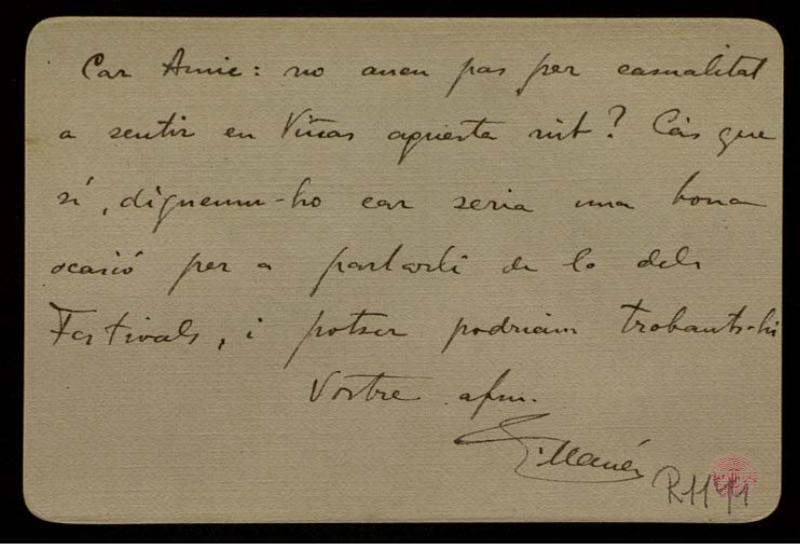 Car Amic: no aneu pas per casualitat
a sentir en Viñas aquesta nit? Cás que
sí, digueum-ho car seria una bona
ocasió per a parlarli de lo dels
Festivals, i potser podriam trobants-hi
Vostre afm.
R1141